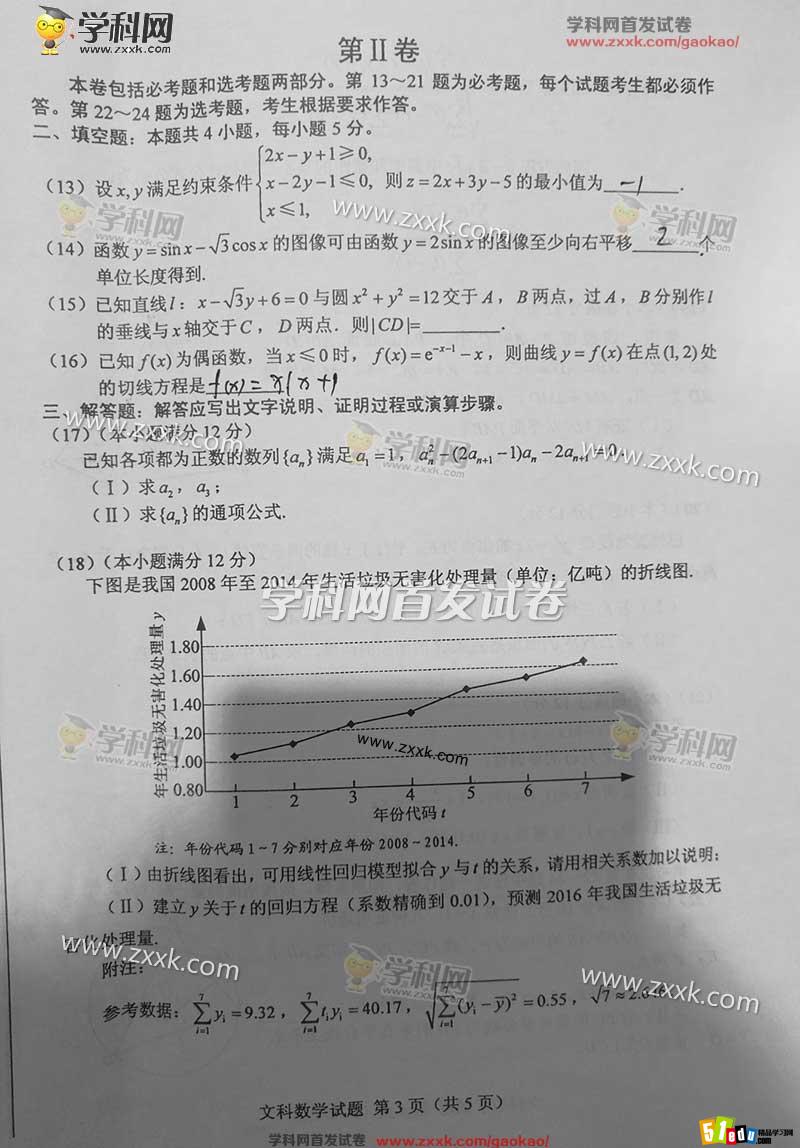 学科网
www.zxxk.com
学科网首发试卷
www.zxxk.com/gaokao/
第Ⅱ卷
本卷包括必考题和选考题两部分。第 13～21 题为必考题，每个试题考生都必须作
答。第 22～24 题为选考题，考生根据要求作答。
二、填空题：本题共 4 小题，每小题 5 分。
（13）设 x, y 满足约束条件 {2x－y＋1≥0, x－2y－1≤0, x≤1, 则 z＝2x＋3y－5 的最小值为 －1 .
（14）函数 y＝sin x－√3cos x 的图像可由函数 y＝2sin x 的图像至少向右平移 2 个
单位长度得到.
（15）已知直线 l：x－√3y＋6＝0 与圆 x²＋y²＝12 交于 A，B 两点，过 A，B 分别作 l
的垂线与 x 轴交于 C，D 两点．则|CD|＝________.
（16）已知 f(x) 为偶函数，当 x≤0 时，f(x)＝e^(−x−1)－x，则曲线 y＝f(x) 在点(1, 2) 处
的切线方程是 f(x)＝x(x+1)
三、解答题：解答应写出文字说明、证明过程或演算步骤。
（17）（本小题满分 12 分）
已知各项都为正数的数列{aₙ}满足 a₁＝1，aₙ²－(2aₙ₊₁－1)aₙ－2aₙ₊₁＝0.
（Ⅰ）求 a₂，a₃；
（Ⅱ）求{aₙ}的通项公式.
（18）（本小题满分 12 分）
下图是我国 2008 年至 2014 年生活垃圾无害化处理量（单位：亿吨）的折线图.
学科网首发试卷
年生活垃圾无害化处理量 y
1.80
1.60
1.40
1.20
1.00
0.80
1 2 3 4 5 6 7
年份代码 t
www.zxxk.com
注：年份代码 1～7 分别对应年份 2008～2014.
（Ⅰ）由折线图看出，可用线性回归模型拟合 y 与 t 的关系，请用相关系数加以说明；
（Ⅱ）建立 y 关于 t 的回归方程（系数精确到 0.01），预测 2016 年我国生活垃圾无
化处理量.
附注：
参考数据：∑(i=1..7) yᵢ＝9.32，∑(i=1..7) tᵢyᵢ＝40.17，√(∑(i=1..7)(yᵢ－ȳ)²)＝0.55，√7≈2.646.
文科数学试题 第 3 页（共 5 页）
学科网首发试卷 www.zxxk.com/gaokao/
51edu
精品学习网
.com